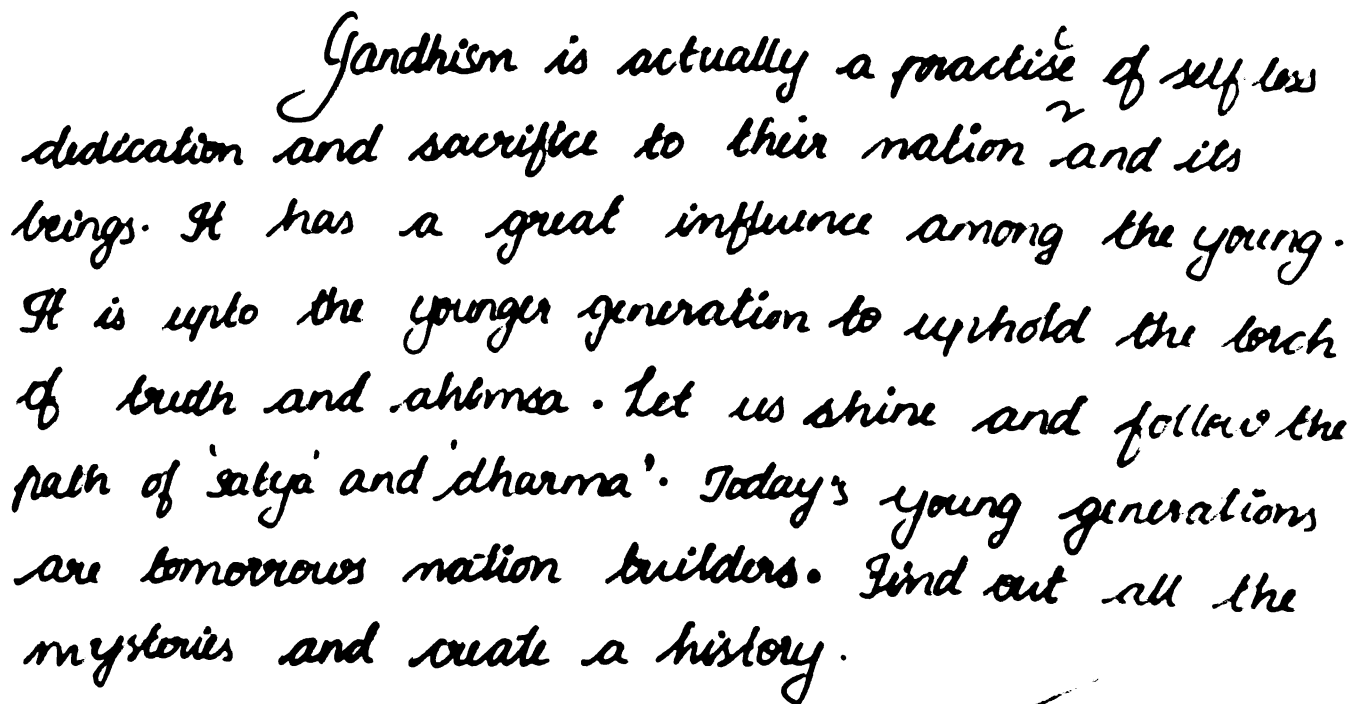 Gandhism is actually a practise of self less
dedication and sacrifice to their nation and its
beings. It has a great influence among the young.
It is upto the younger generation to uphold the torch
of truth and ahimsa. Let us shine and follow the
path of 'satya' and 'dharma'. Today's young generations
are tomorrows nation builders. Find out all the
mysteries and create a history.